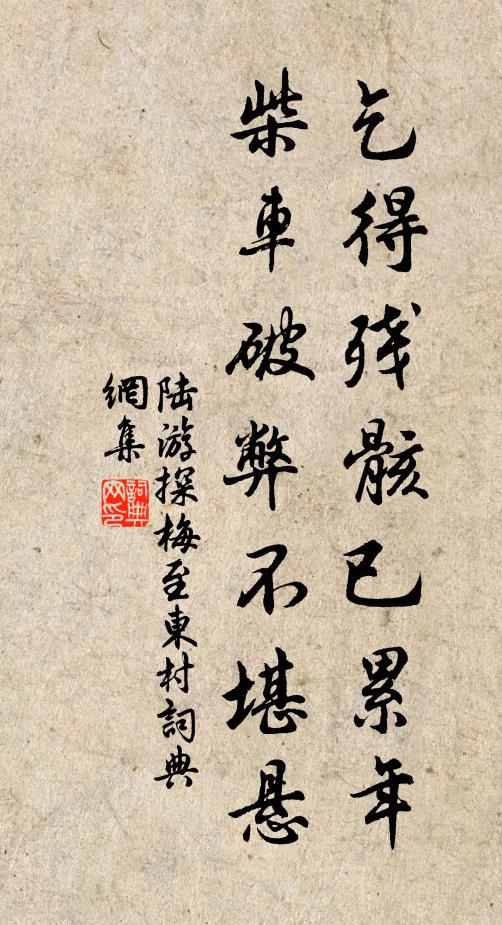 乞得残骸已累年
柴車破弊不堪悬
陆游探梅至東村詞典
網集
詞典
网印